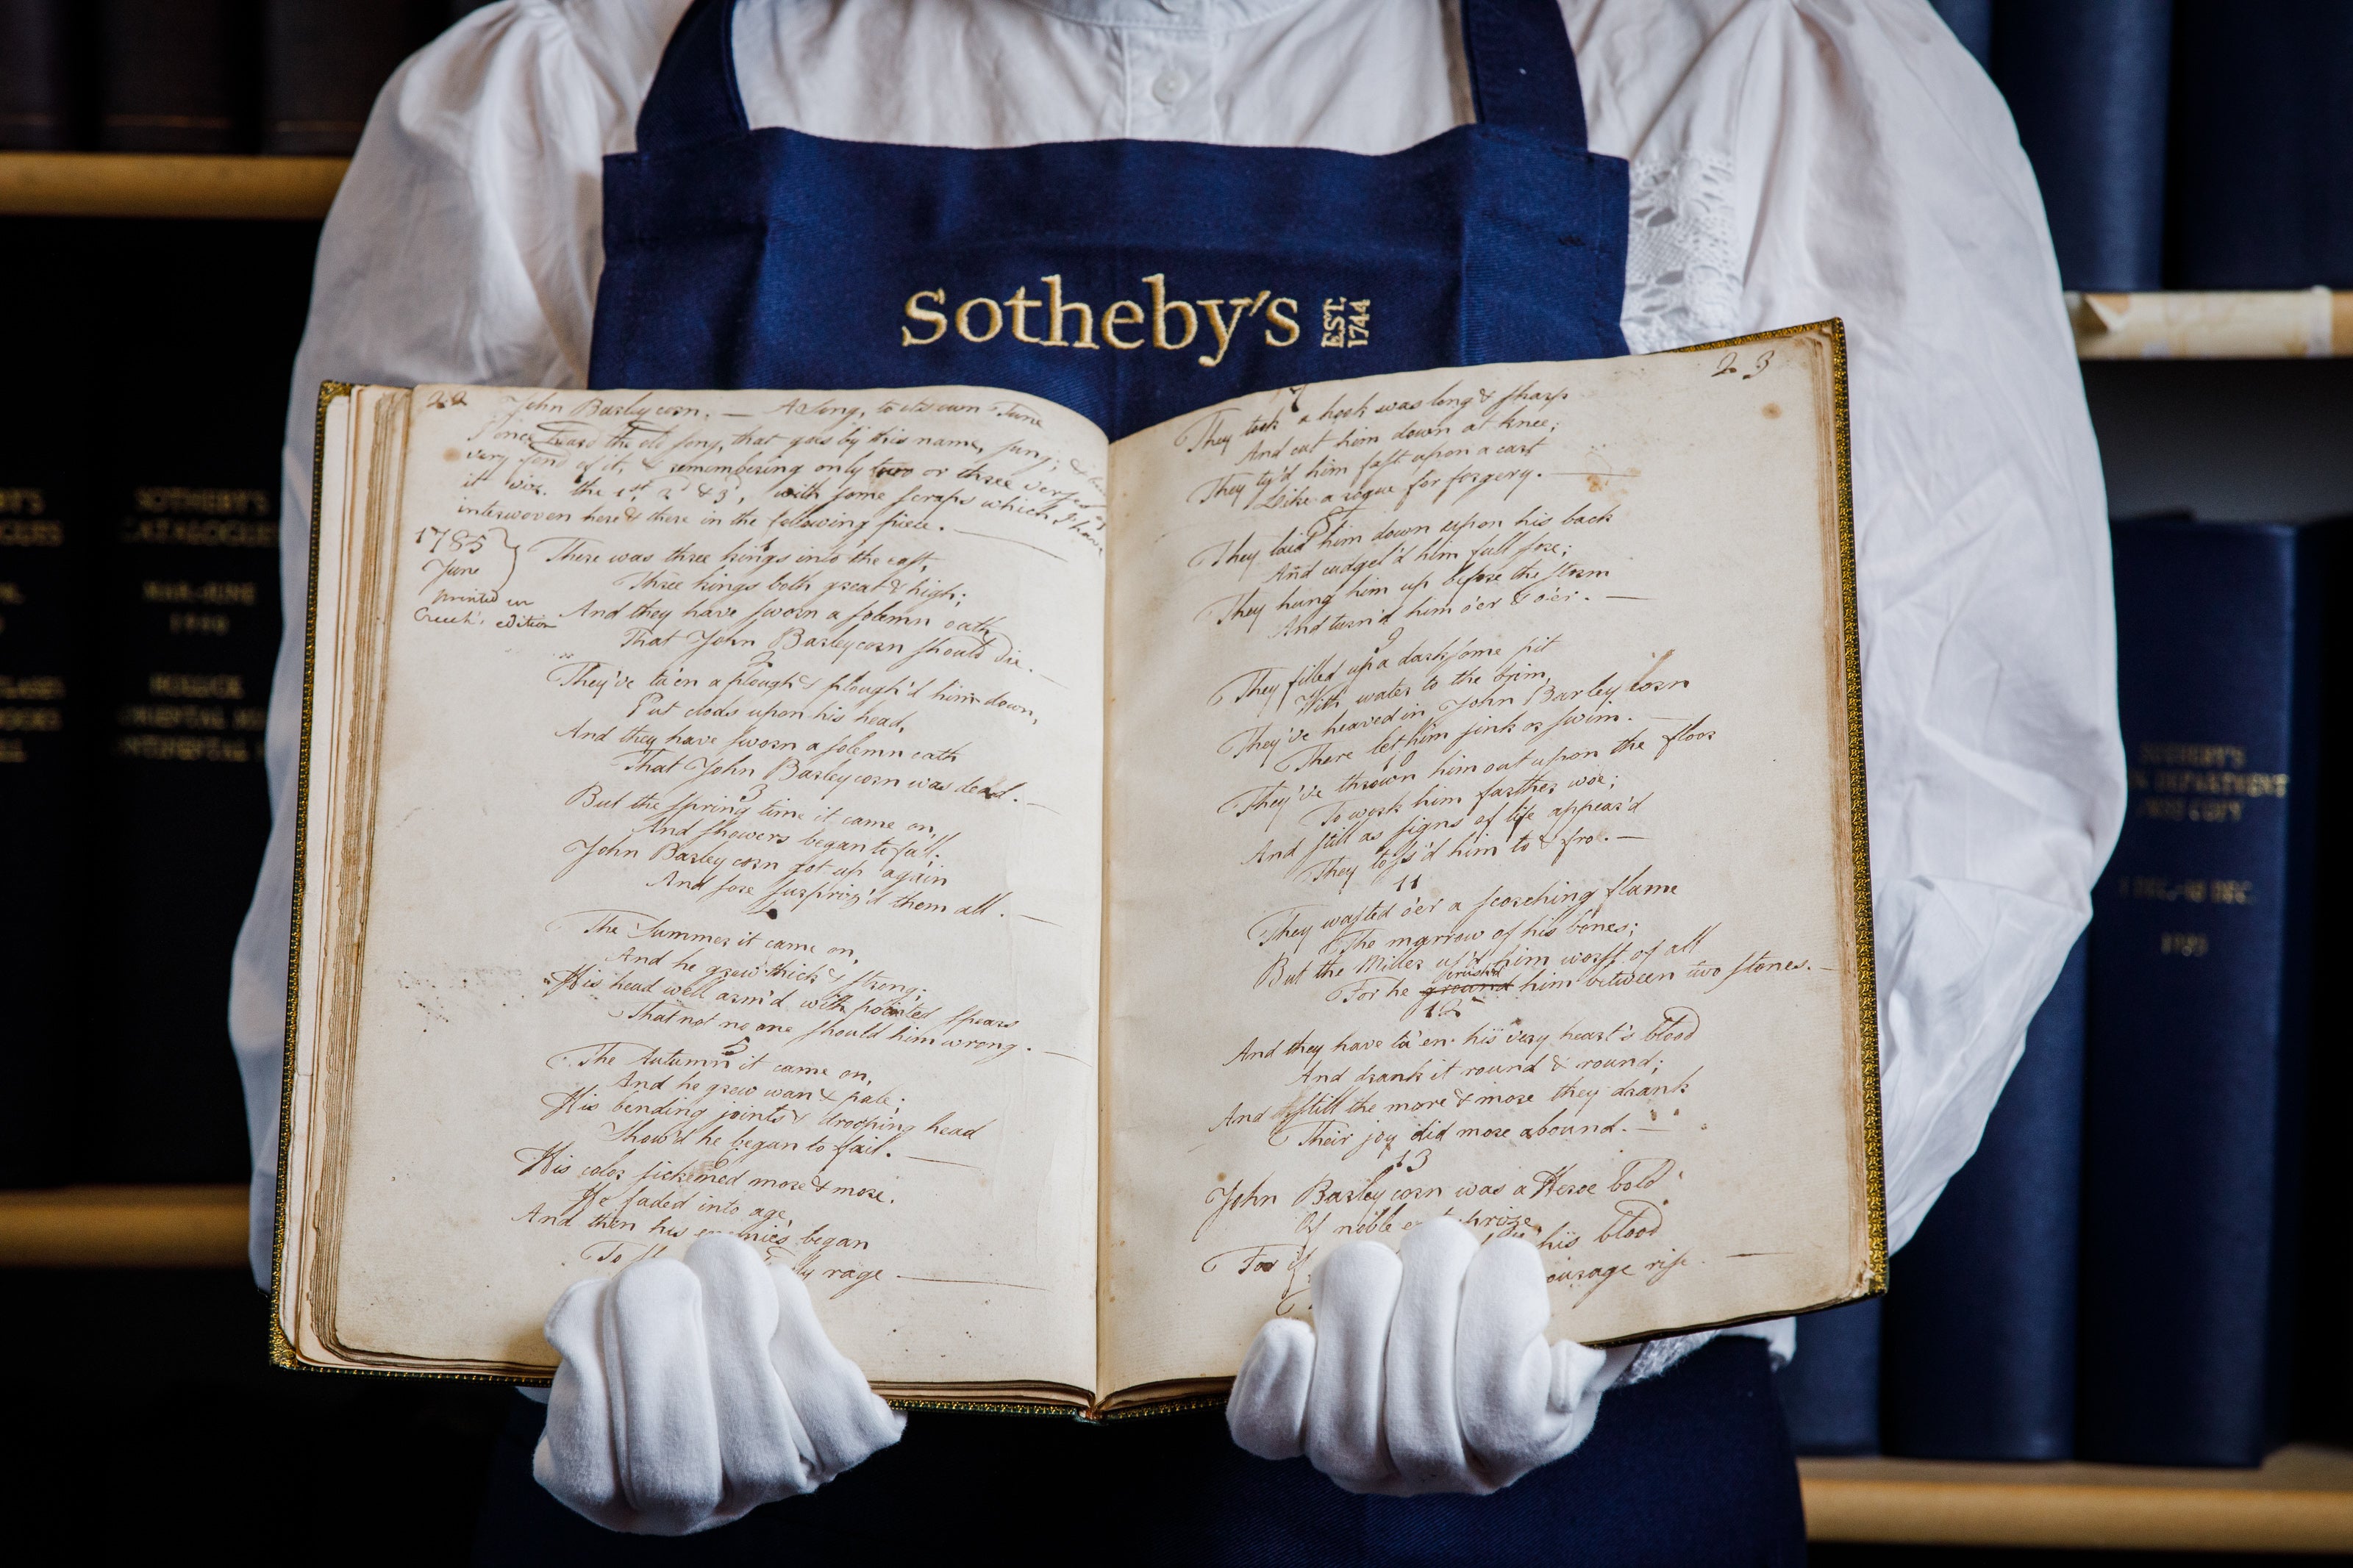 Sotheby's EST. 1744
22
John Barleycorn. — A Song, to its own Tune
I once heard the old song, that goes by this name, sung; & being
very fond of it, & remembering only two or three verses of
it viz. the 1st, 2d & 3d, with some scraps which I have
interwoven here & there in the following piece. —
1785
June
printed in
Creech's edition
1
There was three kings into the east,
Three kings both great & high;
And they have sworn a solemn oath
That John Barleycorn should die. —
2
They've ta'en a plough & plough'd him down,
Put clods upon his head,
And they have sworn a solemn oath
That John Barleycorn was dead. —
3
But the spring time it came on,
And showers began to fall;
John Barleycorn got up again
And sore surpris'd them all. —
4
The Summer it came on,
And he grew thick & strong;
His head well arm'd with pointed spears
That not no one should him wrong. —
5
The Autumn it came on,
And he grew wan & pale;
His bending joints & drooping head
Show'd he began to fail. —
6
His color sicken'd more & more,
He faded into age,
And then his enemies began
To rage —
23
7
They took a hook was long & sharp
And cut him down at knee;
They ty'd him fast upon a cart
Like a rogue for forgery. —
8
They laid him down upon his back
And cudgel'd him full sore;
They hung him up before the storm
And turn'd him o'er & o'er. —
9
They filled up a darksome pit
With water to the brim,
They've heaved in John Barleycorn
There let him sink or swim. —
10
They've thrown him out upon the floor
To work him farther woe;
And still as signs of life appear'd
They toss'd him to & fro. —
11
They wasted o'er a scorching flame
The marrow of his bones;
But the Miller us'd him worst of all
crush'd
For he ground him between two stones. —
12
And they have ta'en his very heart's blood
And drank it round & round;
And still the more & more they drank
Their joy did more abound. —
13
John Barleycorn was a Heroe bold
Of noble enterprize,
For if his blood
courage rise —
SOTHEBY'S
CATALOGUES
MAR-JUNE